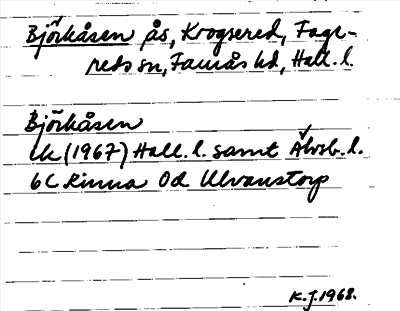 Björkåsen ås, Krogsered, Fage-
reds sn, Faurås hd, Hall. l.
Björkåsen
Ek (1967) Hall. l. samt Älvsb. l.
6C Kinna 0d Ulvanstorp
K.J. 1968.